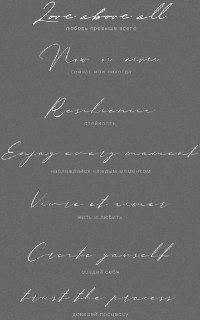 Love above all
любовь превыше всего
Now or never
сейчас или никогда
Resilience
стойкость
Enjoy every moment
наслаждайся каждым моментом
Vivre et aimer
жить и любить
Create yourself
создай себя
trust the process
доверяй процессу